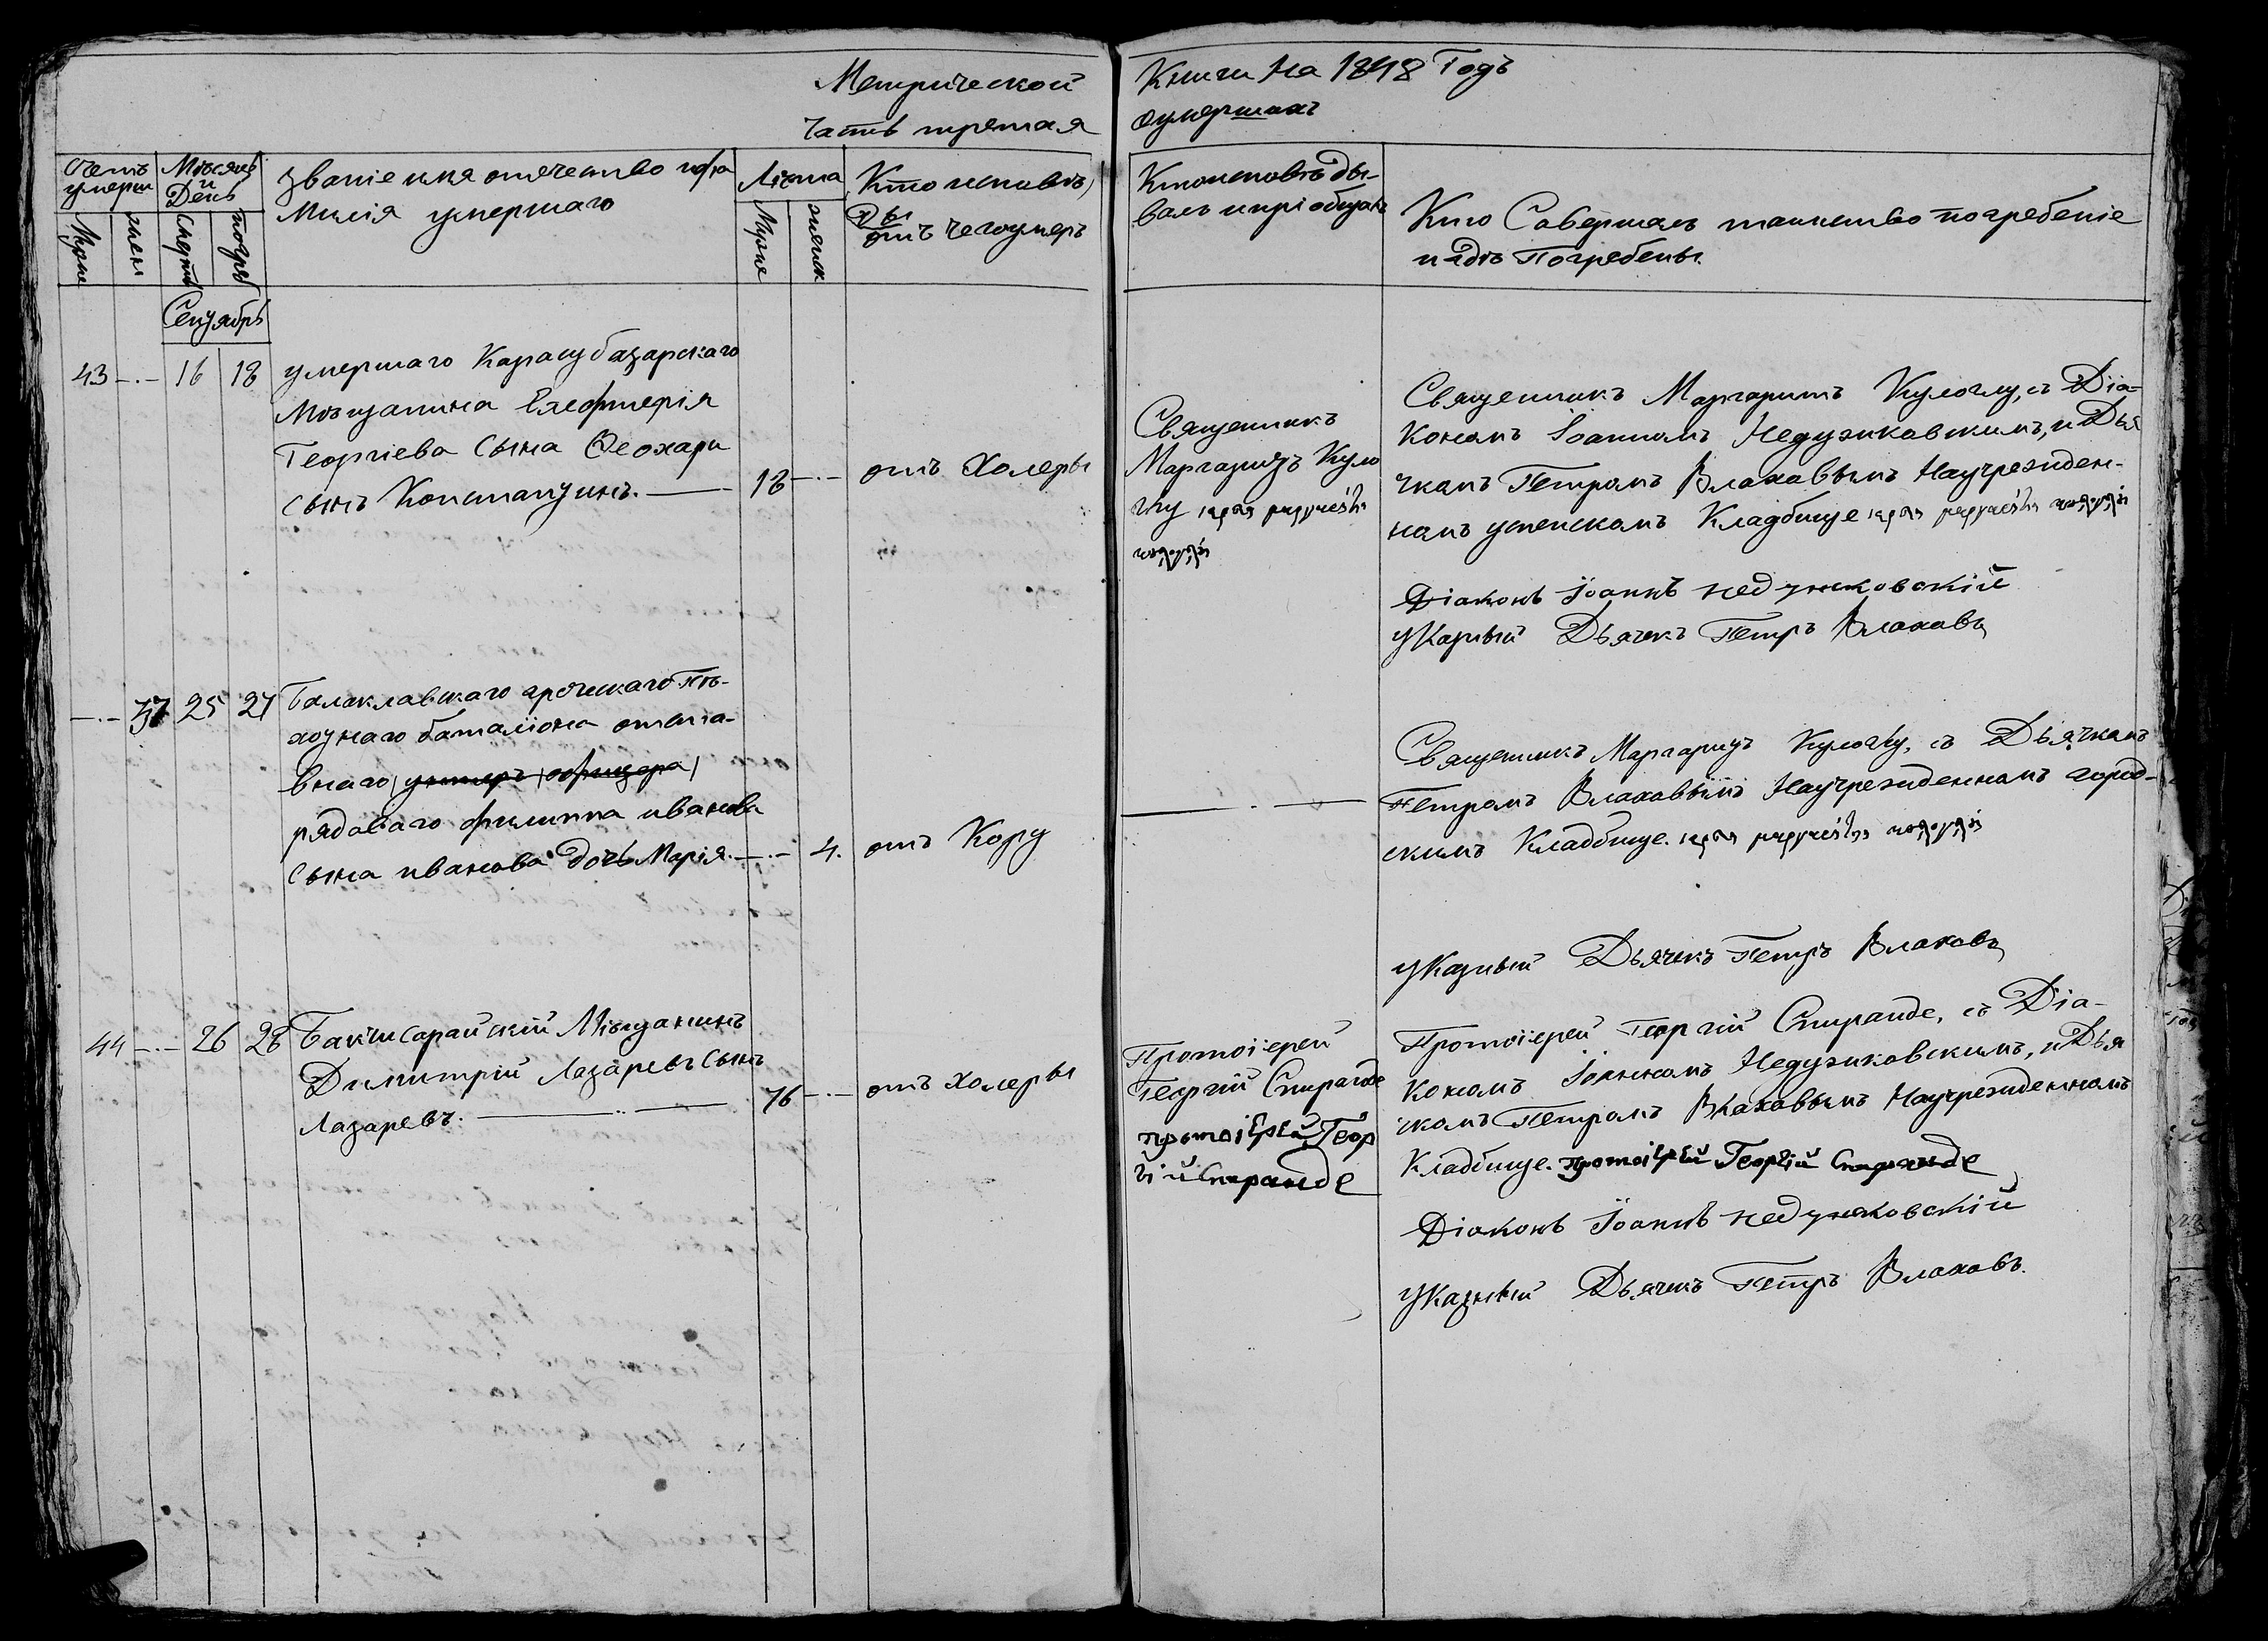 Метрической
часть третая
Книги на 1848 Годъ
оумершихъ
Счетъ
умерш
Мѣсяцъ
и
День
Званіе имя отечество и фа
милія умершаго
Лѣта
Кто исповѣ
ды
отъ чего умеръ
Кто исповѣды-
валъ и пріобщалъ
Кто Совершалъ таинство погребеніе
и гдѣ Погребены.
Муже
жен
Смерти
погре
Муже
женск
Сентябрь
43 -.- 16 18
умершаго Карасубазарскаго
Мѣщанина Елефтерія
Георгіева Сына Ѳеохари
Сынъ Константинъ.
18 -.- отъ Холеры
Священникъ
Маргаритъ Куло
глу
Священникъ Маргаритъ Кулоглу, съ Діа-
кономъ Іоанномъ Недузжковскимъ, и Дья
чкомъ Петромъ Влаховымъ На учрежден-
номъ успенскомъ Кладбище
Діаконъ Іоаннъ недзужковскій
указный Дьячекъ Петръ Влаховъ
-.- 37 25 27
Балаклавскаго греческаго Пѣ-
хотнаго баталіона отста-
внаго (унтеръ офицера)
рядоваго филиппа иванова
Сына иванова дочь Марія.
-.- 4. отъ Кору
Священникъ Маргаритъ Кулоглу, съ Дьячкомъ
Петромъ Влаховымъ На учрежденномъ город-
скимъ Кладбище.
указный Дьячекъ Петръ Влаховъ
44 -.- 26 28
Бахчисарайскій Мѣщанинъ
Димитрій Лазаревъ Сынъ
Лазаревъ.
76 -.- отъ холеры
Протоіерей
Георгій Спиранде
протоіерей Геор
гій Спиранде
Протоіерей Георгій Спиранде, съ Діа-
кономъ Іоанномъ Недузжковскимъ, и Дья
чкомъ Петромъ Влаховымъ На учрежденномъ
Кладбище. протоіерей Георгій Спиранде
Діаконъ Іоаннъ недзужковскій
указный Дьячекъ Петръ Влаховъ.